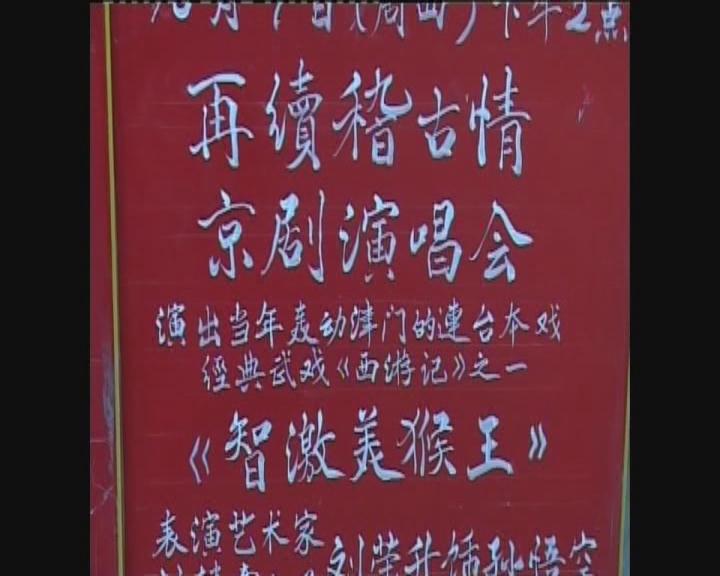 下午2点
再續稽古情
京剧演唱会
演出当年轰动津门的連台本戏
經典武戏《西游记》之一
《智激美猴王》
表演艺术家
刘荣升饰孙悟空